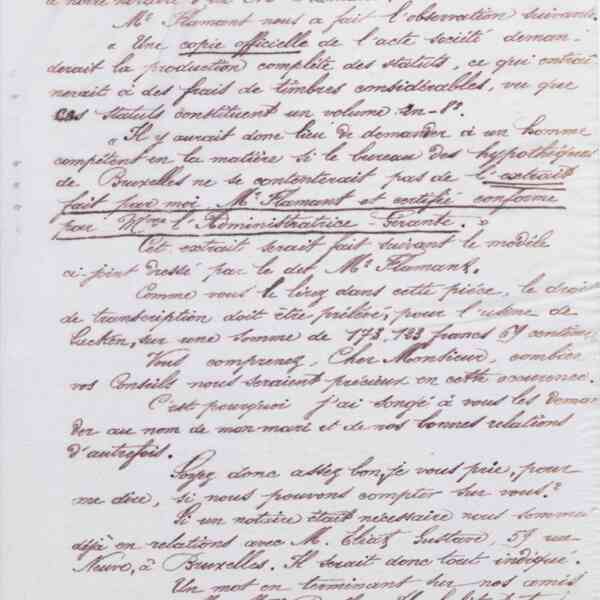 Me Flamant nous a fait l'observation suivante.
" Une copie officielle de l'acte société deman-
derait la production complète des statuts, ce qui entrai
nerait à des frais de timbres considérables, vu que
ces statuts constituent un volume in-8°.
" Il y aurait donc lieu de demander à un homme
compétent en la matière si le bureau des hypothèques
de Bruxelles ne se contenterait pas de l'extrait
fait par moi Me Flamant et certifié conforme
par Mme l'Administratrice - Gérante. "
Cet extrait serait fait suivant le modèle
ci-joint dressé par le dit Me Flamant.
Comme vous le lirez dans cette pièce, le droit
de transcription doit être prélévé, pour l'usine de
Laeken, sur une somme de 173.123 francs 69 centimes
Vous comprenez, Cher Monsieur, combien
vos Conseils nous seraient précieux en cette occurence.
C'est pourquoi j'ai songé à vous les deman
der au nom de mon mari et de nos bonnes relations
d'autrefois.
Soyez donc assez bon, je vous prie, pour
me dire, si nous pouvons compter sur vous ?
Si un notaire était nécessaire nous sommes
déjà en relations avec M. Gustave, 59 rue
Neuve, à Bruxelles. Il serait donc tout indiqué.
Un mot en terminant sur nos amis